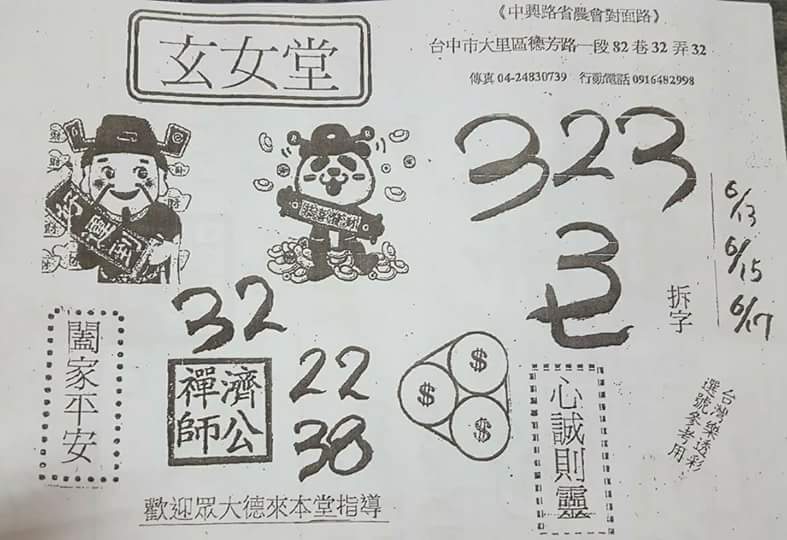 《中興路省農會對面路》
玄女堂
台中市大里區德芳路一段82巷32弄32
傳真 04-24830739 行動電話 0916482998
好運到
恭喜發財
323
6/13
6/15
6/17
拆字
32
闔家平安
濟公禪師
22
38
$
$
$
心誠則靈
台灣樂透彩
選號參考用
歡迎眾大德來本堂指導